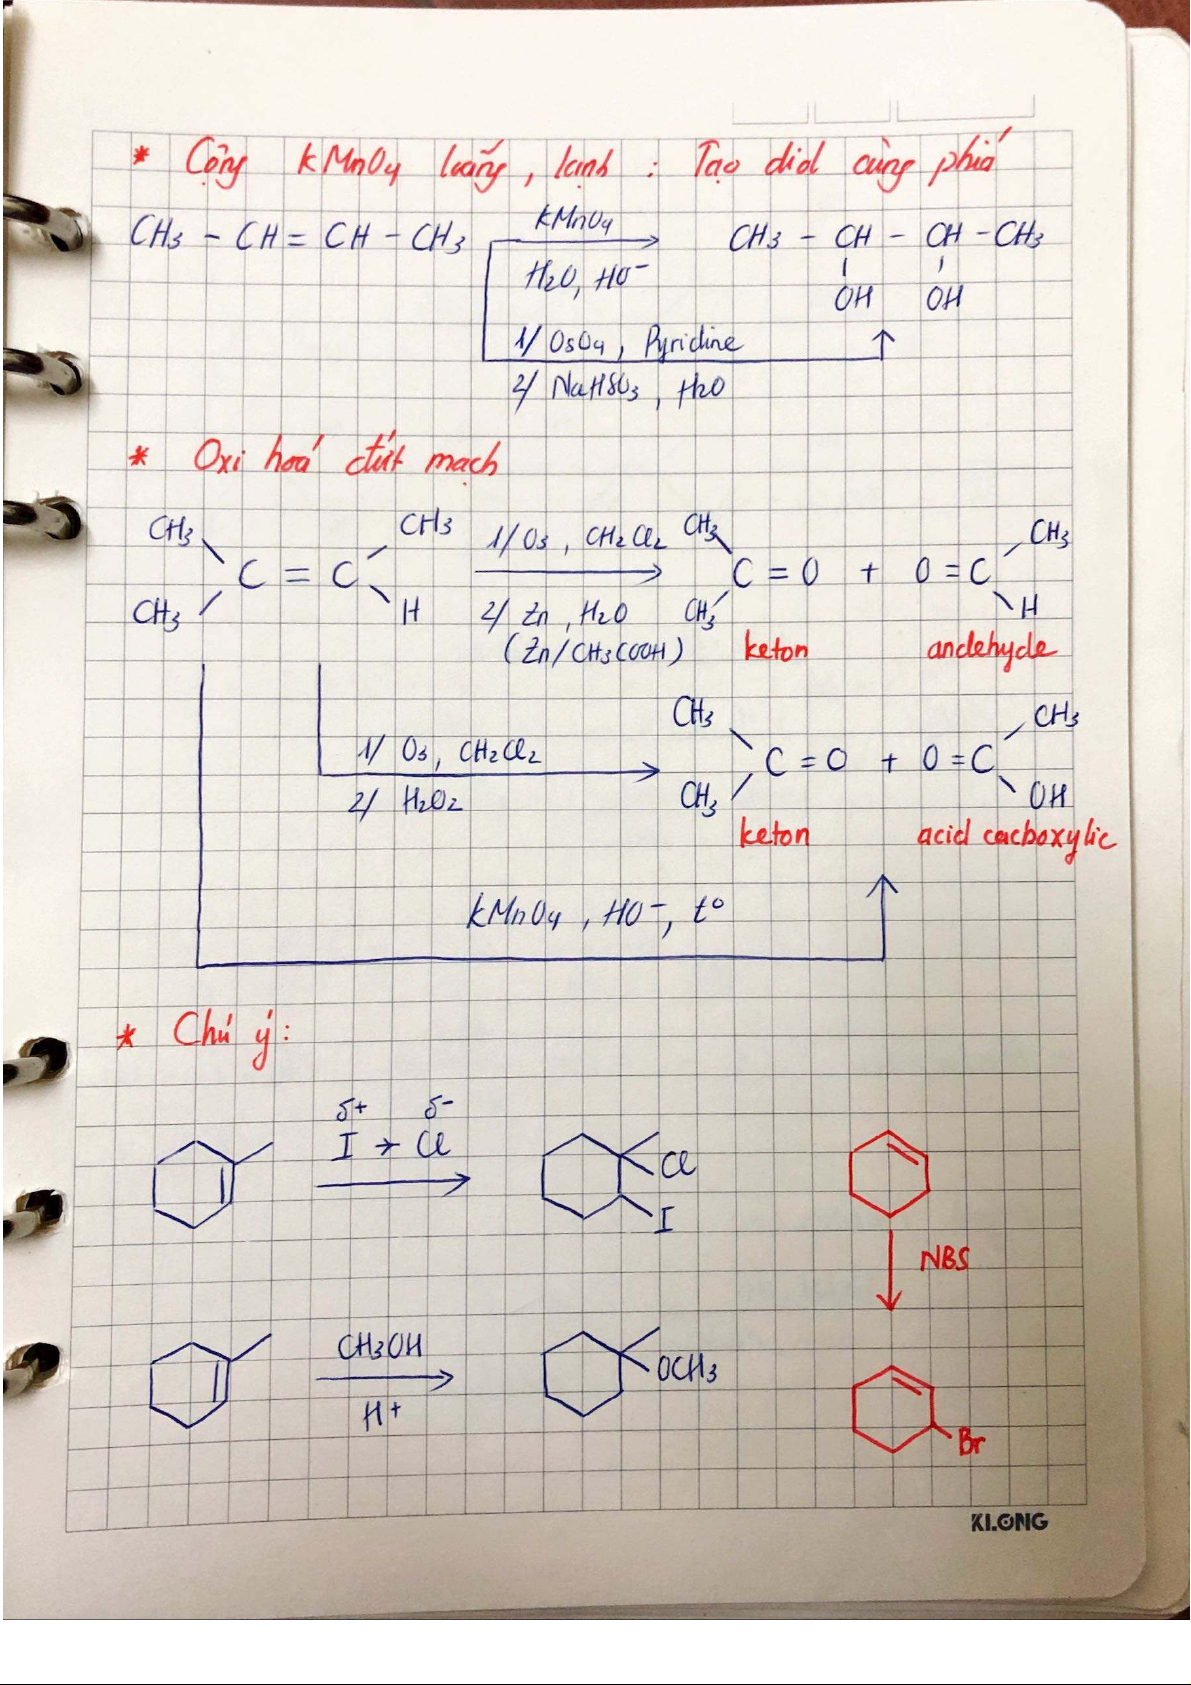 * Cộng KMnO4 loãng, lạnh : Tạo diol cùng phía
CH3 - CH = CH - CH3
KMnO4
H2O, HO-
CH3 - CH - CH - CH3
OH OH
1/ OsO4, Pyridine
2/ NaHSO3, H2O
* Oxi hoá đứt mạch
CH3 CH3
C = C
CH3 H
1/ O3, CH2Cl2
2/ Zn, H2O
(Zn/CH3COOH)
CH3 CH3
C = O + O = C
CH3 H
keton andehyde
1/ O3, CH2Cl2
2/ H2O2
CH3 CH3
C = O + O = C
CH3 OH
keton acid cacboxylic
KMnO4, HO-, t°
* Chú ý:
δ+ δ-
I → Cl
Cl
I
NBS
CH3OH
H+
OCH3
Br
KLONG